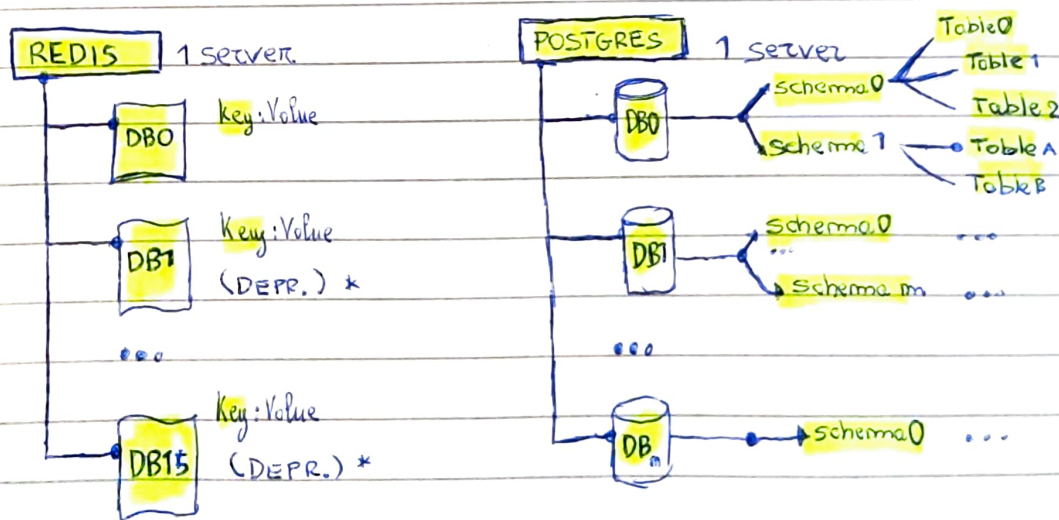 REDIS 1 server
DB0 Key:Value
DB1 Key:Value
(DEPR.) *
...
DB15 Key:Value
(DEPR.) *
POSTGRES 1 server
DB0
schema0
Table0
Table 1
Table 2
schema 1
Table A
Table B
DB1
schema0 ...
...
schema m ...
...
DB m
schema0 ...